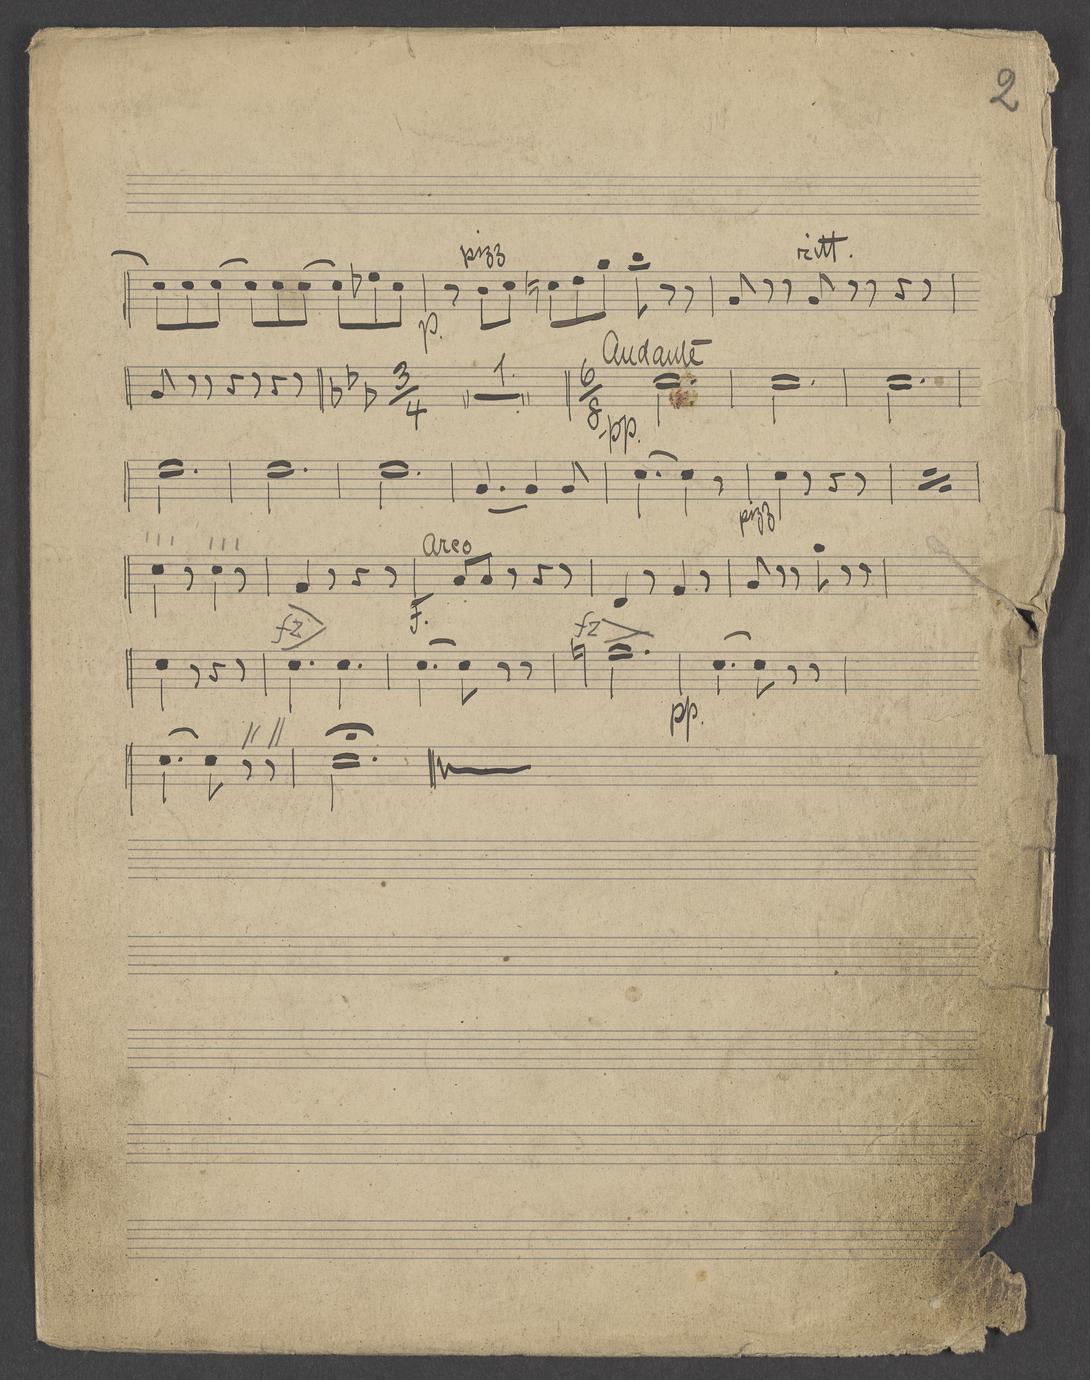 2
pizz ritt.
p.
Andante
3/4 1. 6/8
pp.
pizz
Arco
f.
fz fz
pp.